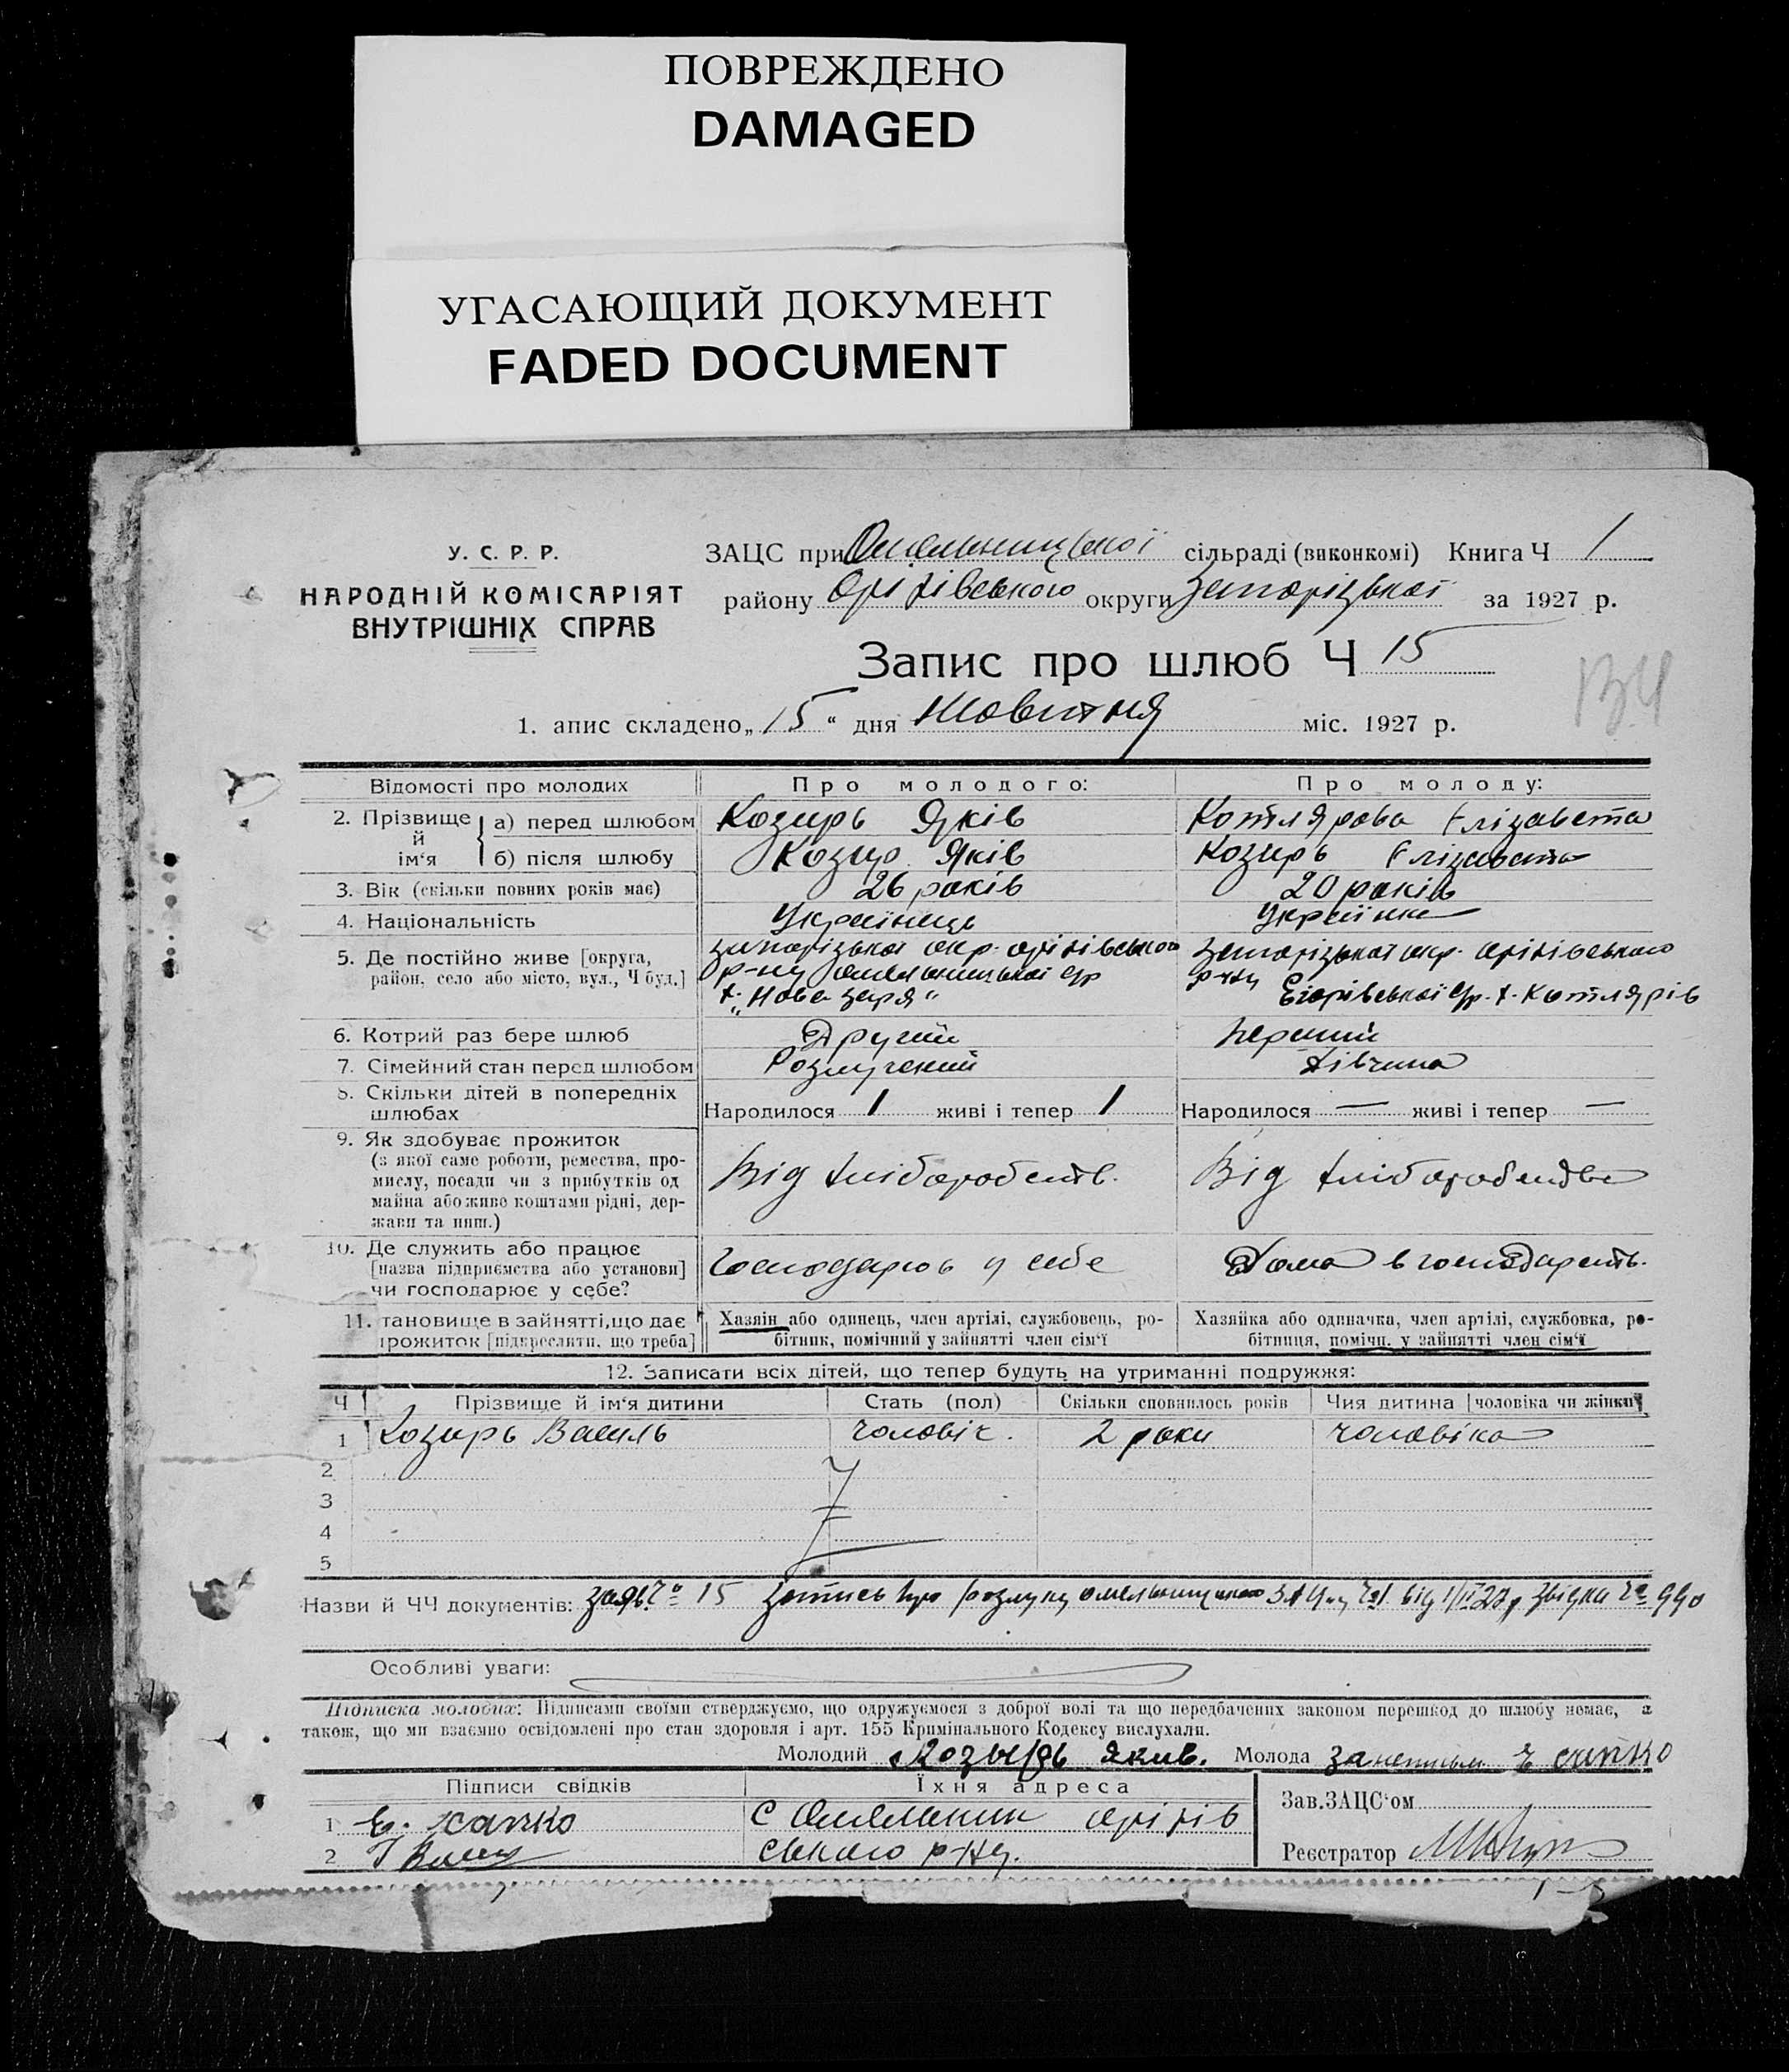 ПОВРЕЖДЕНО
DAMAGED
УГАСАЮЩИЙ ДОКУМЕНТ
FADED DOCUMENT
У. С. Р. Р.
НАРОДНІЙ КОМІСАРІЯТ
ВНУТРІШНІХ СПРАВ
ЗАЦС при Омельницької сільраді (виконкомі) Книга Ч 1
району Оріхівського округи Запорізької за 1927 р.
Запис про шлюб Ч 15
1. апис складено „15“ дня Жовтня міс. 1927 р.
Відомості про молодих Про молодого: Про молоду:
2. Прізвище й ім'я
а) перед шлюбом Козирь Яків Котлярова Єлізавета
б) після шлюбу Козир Яків Козирь Єлізавета
3. Вік (скільки повних років має) 26 років 20 років
4. Національність Українець Українка
5. Де постійно живе [округа,
район, село або місто, вул., Ч буд.]
Запорізької окр. оріхівського
р-ну Омельницької с/р
х. „Нова Заря“
Запорізької окр. оріхівського
р-ну Єгорівської с/р. х. Котлярів
6. Котрий раз бере шлюб Другий Перший
7. Сімейний стан перед шлюбом Розлучений дівчина
8. Скільки дітей в попередніх
шлюбах
Народилося 1 живі і тепер 1 Народилося — живі і тепер —
9. Як здобуває прожиток
(з якої саме роботи, ремества, про-
мислу, посади чи з прибутків од
майна або живе коштами рідні, дер-
жави та инш.)
Від хліборобств. Від хліборобства
10. Де служить або працює
[назва підприємства або установи]
чи господарює у себе?
Господарює у себе Дома в господарств.
11. тановище в зайнятті, що дає
прожиток [підкреслити, що треба]
Хазяїн або одинець, член артілі, службовець, ро-
бітник, помічний у зайнятті член сім'ї
Хазяйка або одиначка, член артілі, службовка, ро-
бітниця, помічн. у зайнятті член сім'ї
12. Записати всіх дітей, що тепер будуть на утриманні подружжя:
Ч Прізвище й ім'я дитини Стать (пол) Скільки сповнилось років Чия дитина [чоловіка чи жінки]
1 Козирь Василь чоловіч. 2 роки чоловіка
2
3
4
5
Назви й ЧЧ документів: 15 запись про розлуку
Особливі уваги:
Підписка молодих: Підписами своїми стверджуємо, що одружуємося з доброї волі та що передбачених законом перешкод до шлюбу немає, а
також, що ми взаємно освідомлені про стан здоровля і арт. 155 Кримінального Кодексу вислухали.
Молодий Козырь Якив. Молода
Підписи свідків Їхня адреса
1 с Омельник оріхів
2 ського р-ну.
Зав. ЗАЦС'ом
Реєстратор